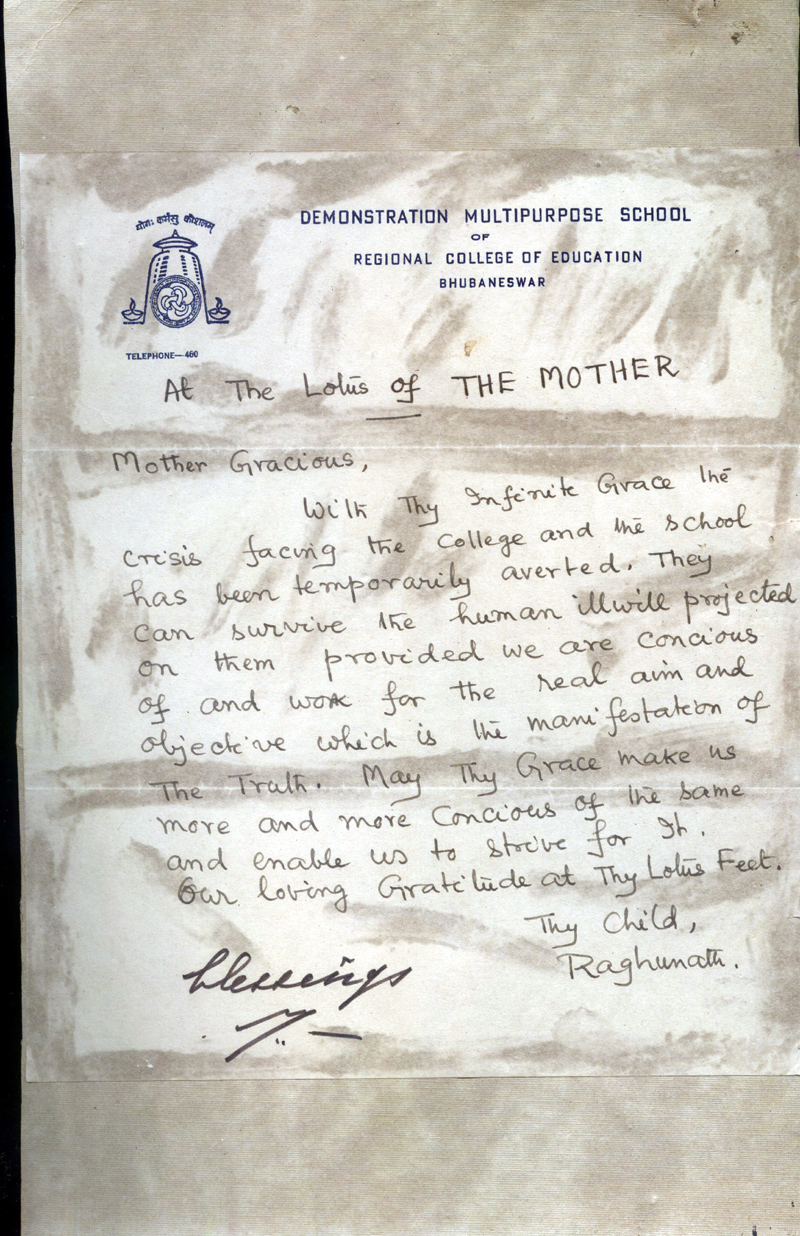 योगः कर्मसु कौशलम्
DEMONSTRATION MULTIPURPOSE SCHOOL
OF
REGIONAL COLLEGE OF EDUCATION
BHUBANESWAR
TELEPHONE—460
At The Lotus of THE MOTHER
Mother Gracious,
With Thy Infinite Grace the
crisis facing the college and the school
has been temporarily averted. They
can survive the human illwill projected
on them provided we are concious
of and work for the real aim and
objective which is the manifestation of
The Truth. May Thy Grace make us
more and more concious of the same
and enable us to strive for It.
Our loving Gratitude at Thy Lotus Feet.
Thy Child,
Raghunath.
blessings